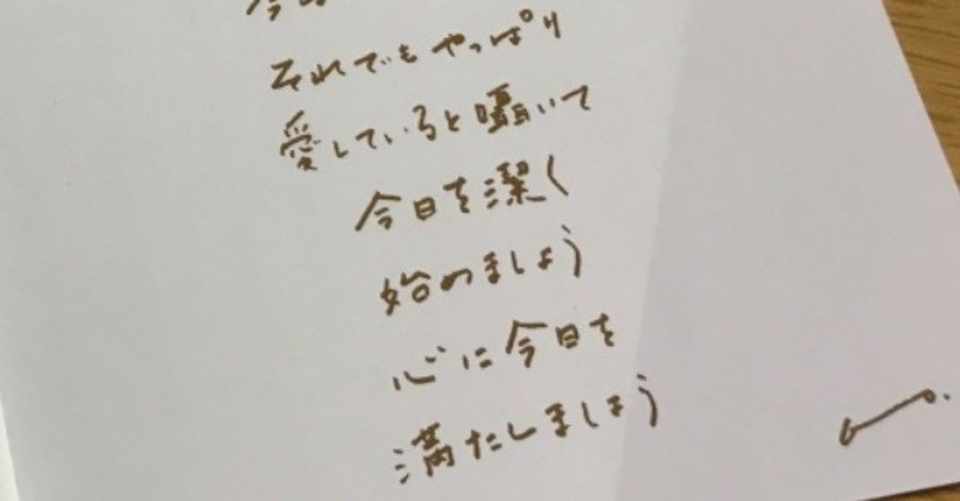 それでもやっぱり
愛していると囁いて
今日を潔く
始めましょう
心に今日を
満たしましょう